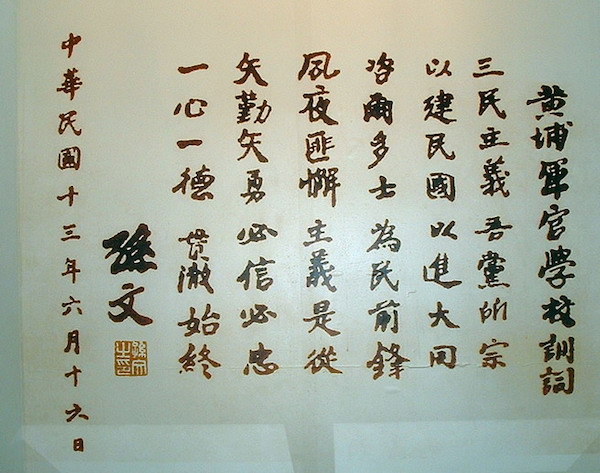 黃埔軍官學校訓詞
三民主義 吾黨所宗
以建民國 以進大同
咨爾多士 為民前鋒
夙夜匪懈 主義是從
矢勤矢勇 必信必忠
一心一德 貫澈始終
孫文
孫文之印
中華民國十三年六月十六日